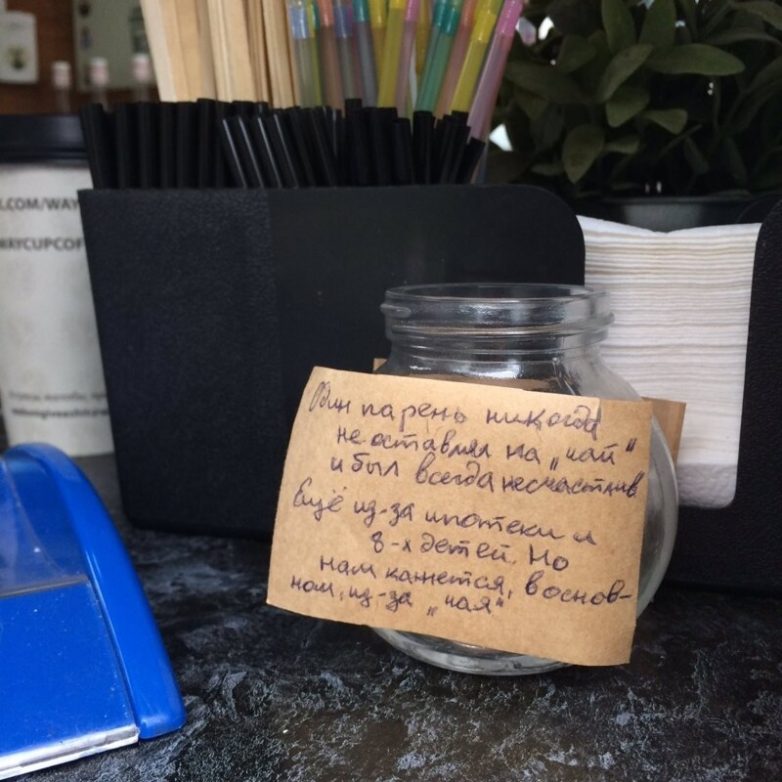 .COM/WAY
WAYCUPCOF
Один парень никогда
не оставлял на „чай“
и был всегда несчастлив
Ещё из-за ипотеки и
8-х детей. Но
нам кажется, в основ-
ном, из-за „чая“